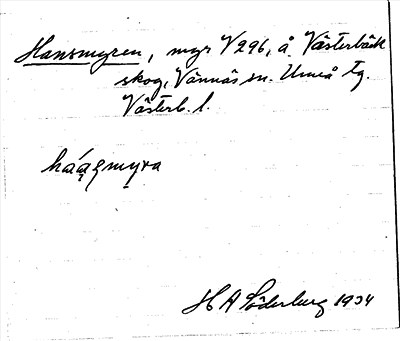 Hansmyren, myr V296, å Västerbäck
skog, Vännäs sn. Umeå tg.
Västerb. l.
H A Söderberg 1934